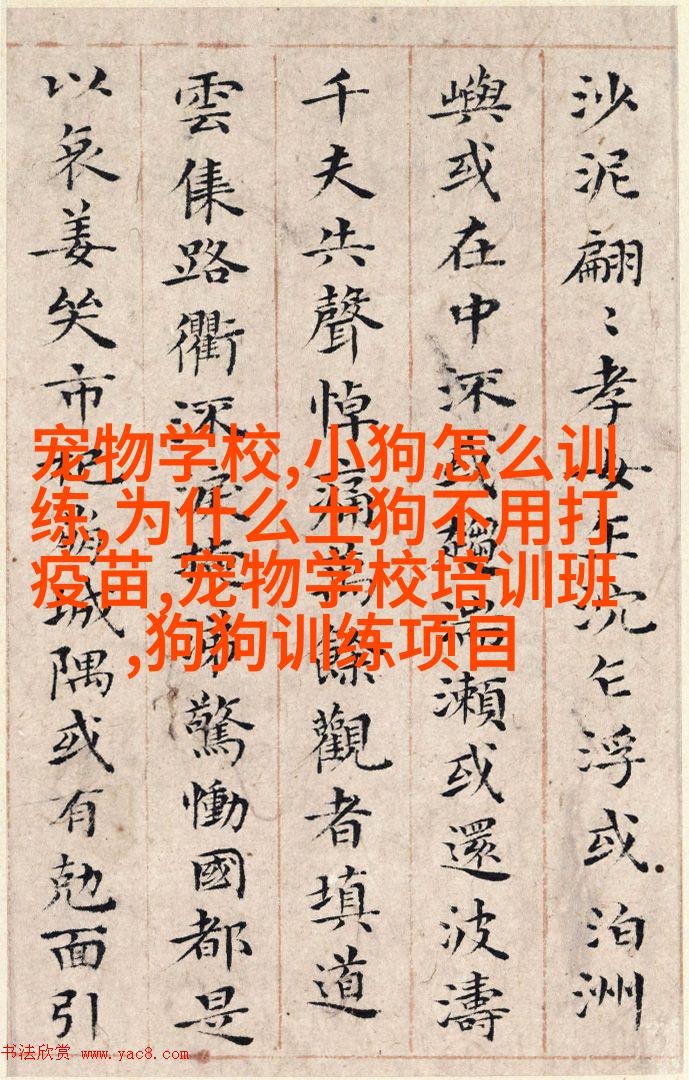 沙泥翩〻孝女乍沉乍浮或泊洲
嶼或在中深或趨湍瀨或還波濤
千夫失聲悼痛萬餘觀者填道
雲集路衢流淚掩涕驚慟國都是
以哀姜哭市杞崩城隅或有勊面引
宠物学校,小狗怎么训
练,为什么土狗不用打
疫苗,宠物学校培训班
,狗狗训练项目
书法欣赏 www.yac8.com